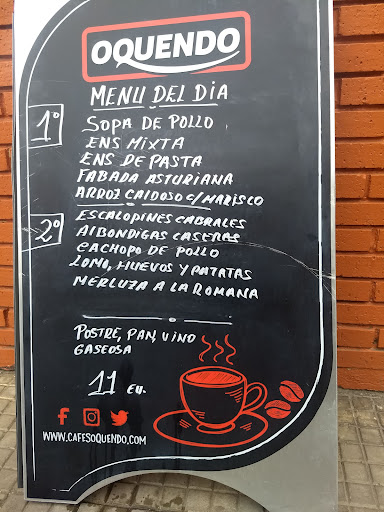 OQUENDO
MENU DEL DIA
1º
SOPA DE POLLO
ENS MIXTA
ENS DE PASTA
FABADA ASTURIANA
ARROZ CALDOSO C/MARISCO
2º
ESCALOPINES CABRALES
ALBONDIGAS CASERAS
CACHOPO DE POLLO
LOMO, HUEVOS Y PATATAS
MERLUZA A LA ROMANA
POSTRE, PAN, VINO
GASEOSA
11 EU.
WWW.CAFESOQUENDO.COM